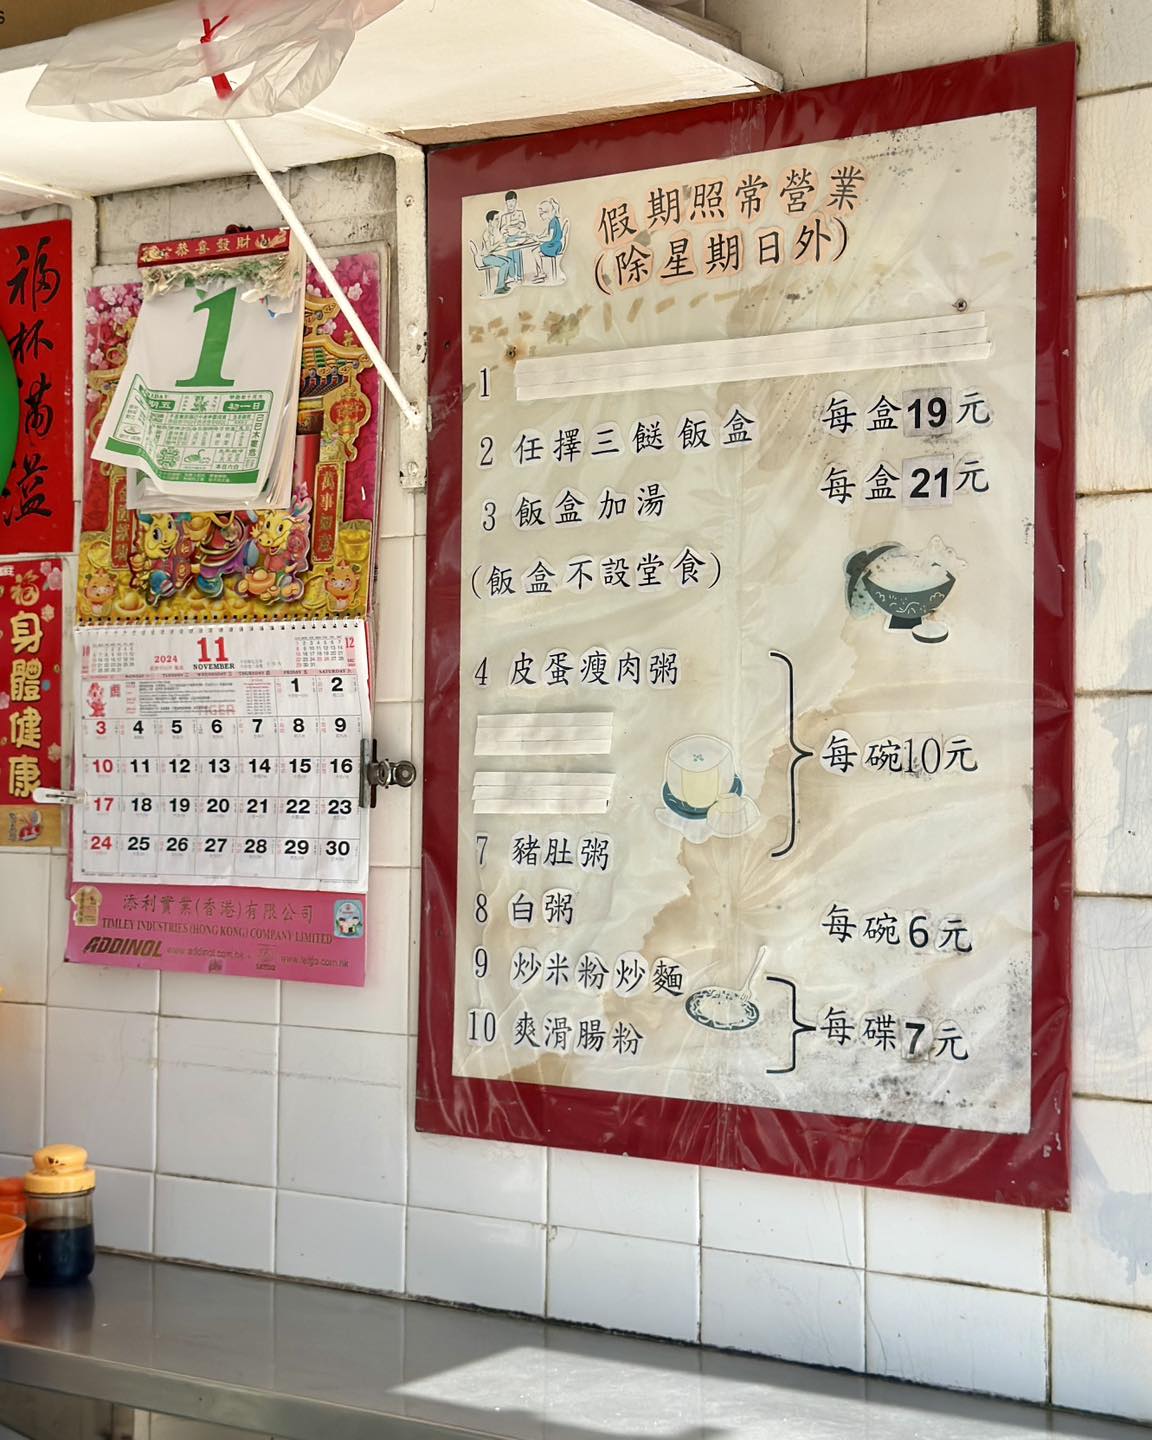 福杯滿溢
身體健康
恭喜發財
1
初一日
萬事如意
2024
11
NOVEMBER
12
1 2
3 4 5 6 7 8 9
10 11 12 13 14 15 16
17 18 19 20 21 22 23
24 25 26 27 28 29 30
添利實業(香港)有限公司
TIMLEY INDUSTRIES (HONG KONG) COMPANY LIMITED
ADDINOL
假期照常營業
(除星期日外)
1
2 任擇三餸飯盒 每盒19元
3 飯盒加湯 每盒21元
(飯盒不設堂食)
4 皮蛋瘦肉粥
每碗10元
7 豬肚粥
8 白粥 每碗6元
9 炒米粉炒麵
每碟7元
10 爽滑腸粉